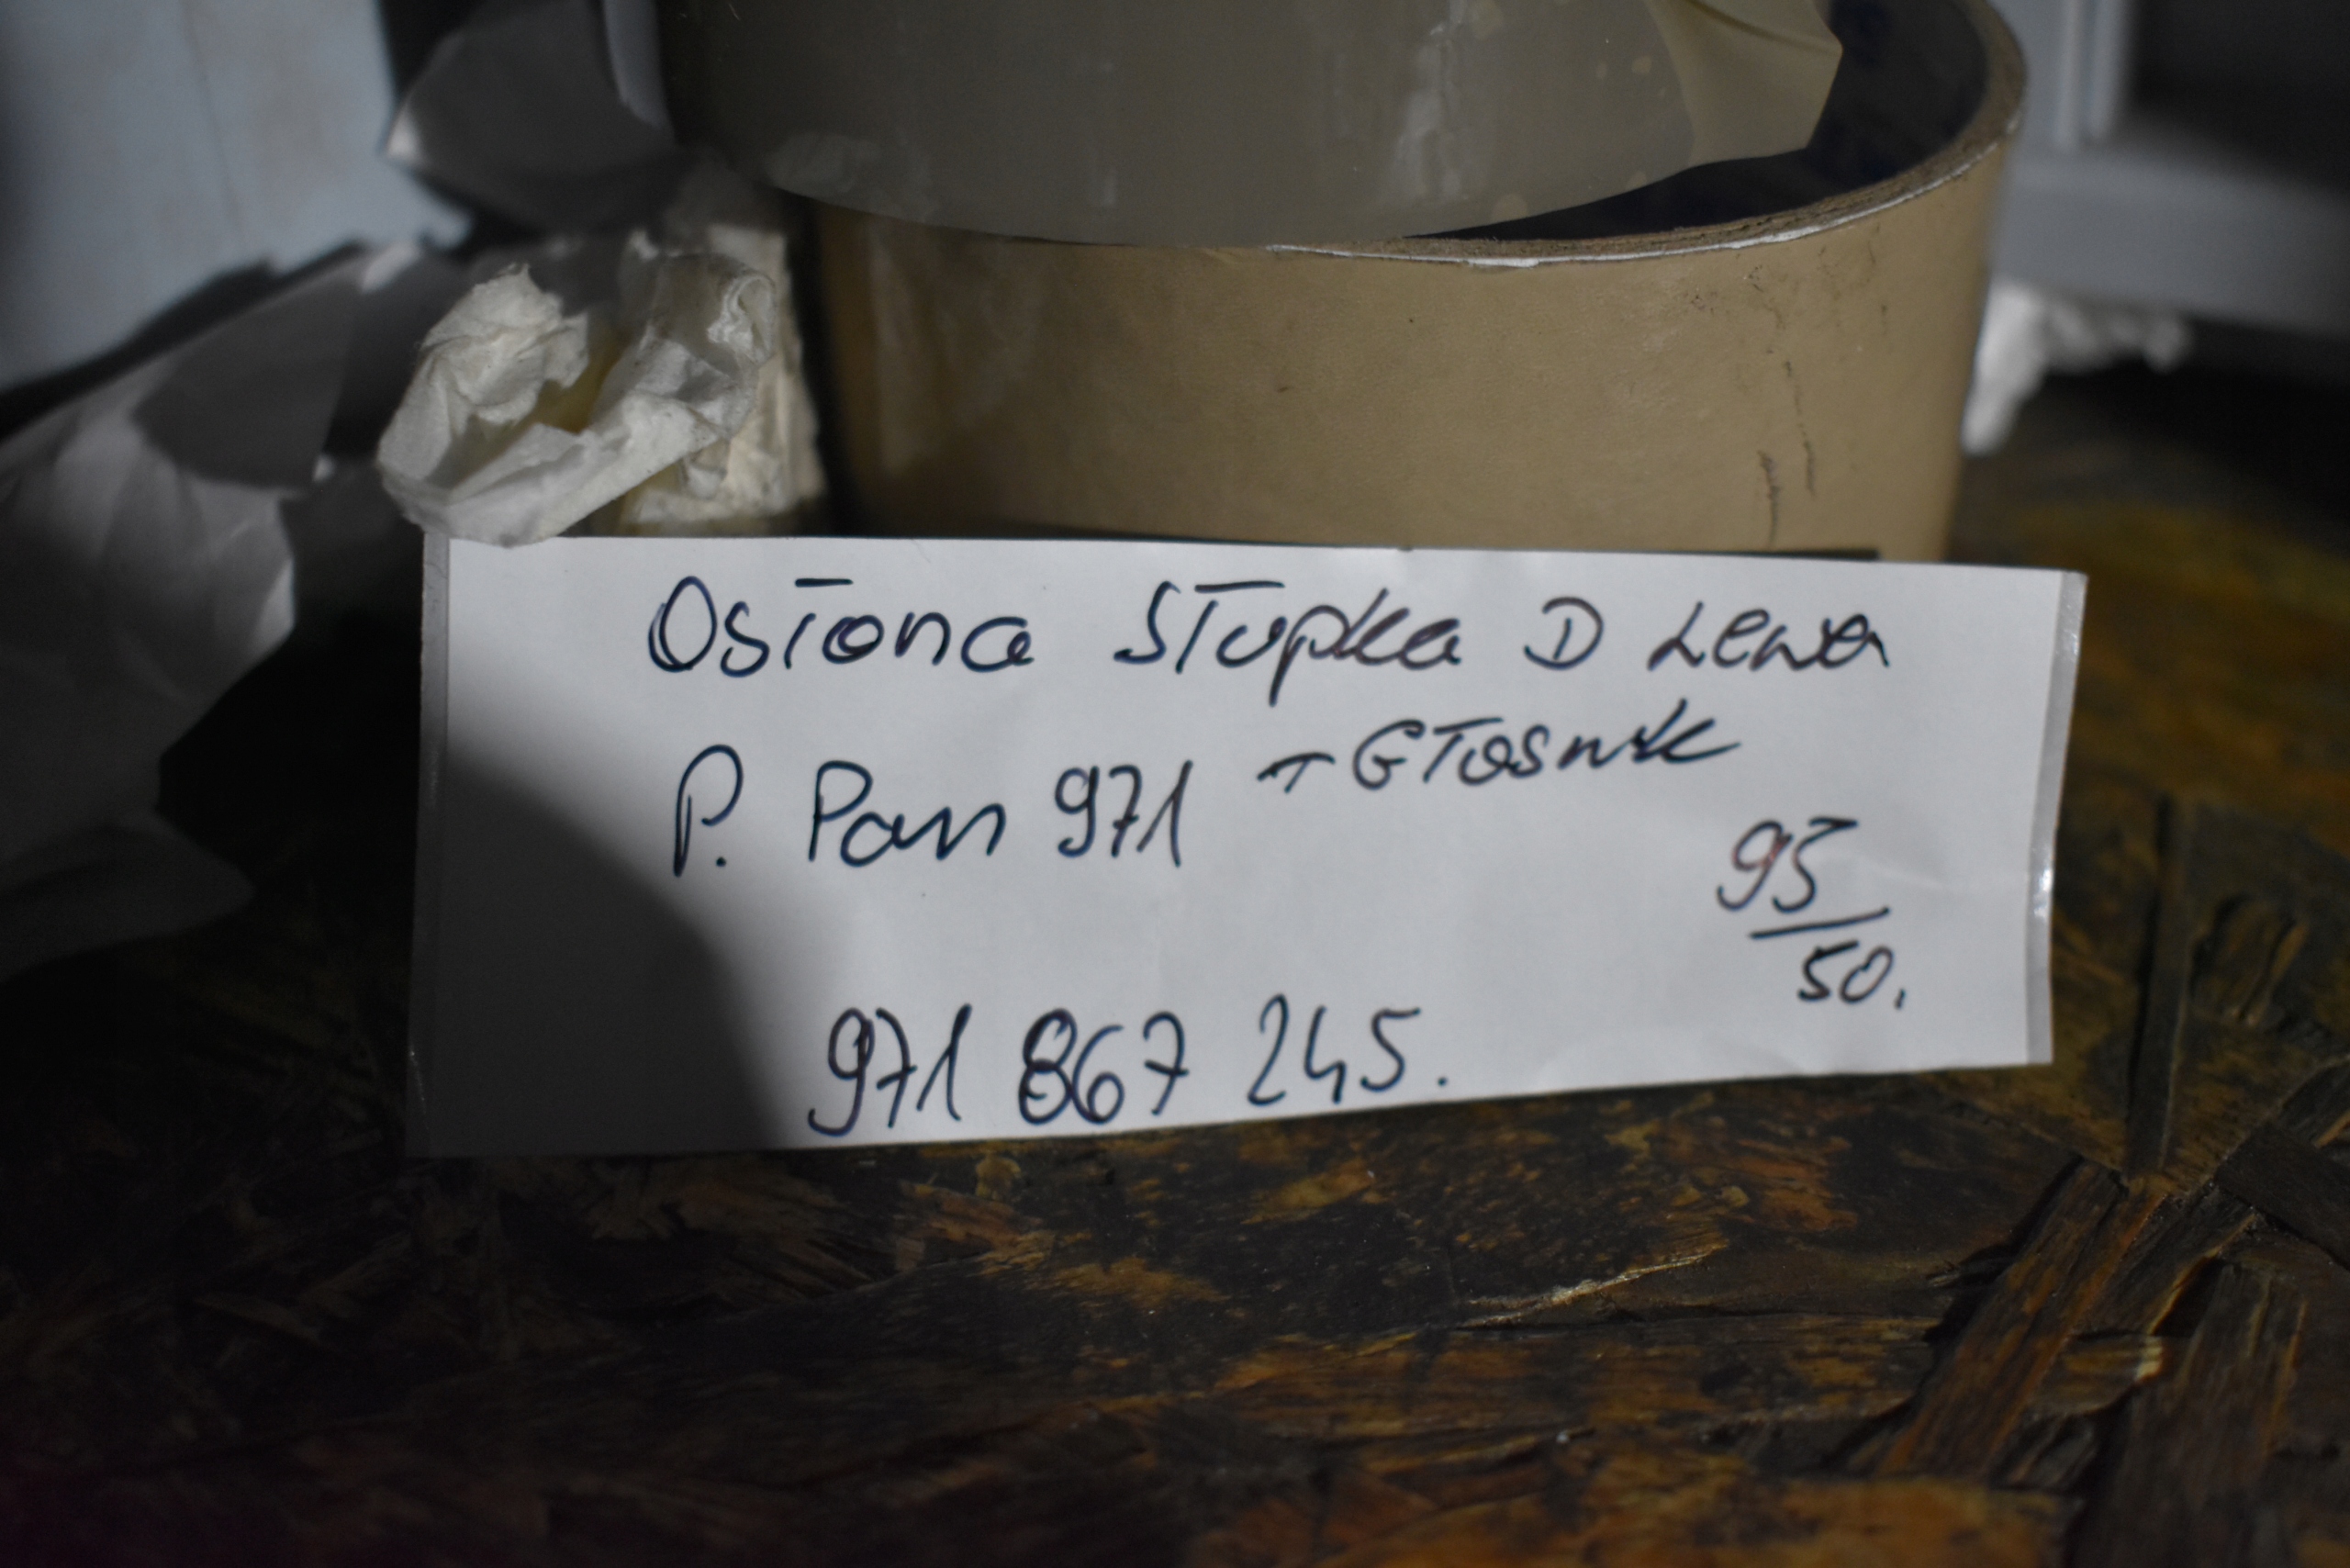 Osłona Słupka D Lewa
P. Pan 971 + Głośnik
95/50.
971 867 245.